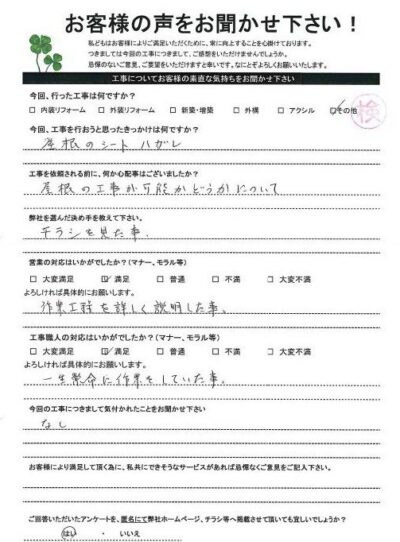 お客様の声をお聞かせ下さい！
私どもはお客様によりご満足いただくために、常に向上することを心掛けております。
つきましては今回の工事につきまして、ご感想をいただけませんでしょうか。
忌憚のないご意見、ご要望をいただけますと幸いです。なにとぞよろしくお願いいたします。
工事についてお客様の素直な気持ちをお聞かせ下さい
今回、行った工事は何ですか？
□ 内装リフォーム □ 外装リフォーム □ 新築・増築 □ 外構 □ アクシル ☑ その他
検
今回、工事を行おうと思ったきっかけは何ですか？
屋根のシートハガレ
工事を依頼される前に、何か心配事はございましたか？
屋根の工事が可能かどうかについて
弊社を選んだ決め手を教えて下さい。
チラシを見た事。
営業の対応はいかがでしたか？（マナー、モラル等）
□ 大変満足 ☑ 満足 □ 普通 □ 不満 □ 大変不満
よろしければ具体的にお願いします。
作業工程を詳しく説明した事。
工事職人の対応はいかがでしたか？（マナー、モラル等）
□ 大変満足 ☑ 満足 □ 普通 □ 不満 □ 大変不満
よろしければ具体的にお願いします。
一生懸命に作業をしていた事。
今回の工事につきまして気付かれたことをお聞かせ下さい
なし
お客様により満足して頂く為に、私共にできそうなサービスがあれば忌憚なくご意見をご記入下さい。
ご回答いただいたアンケートを、匿名にて弊社ホームページ、チラシ等へ掲載させて頂いても宜しいでしょうか？
はい ・ いいえ